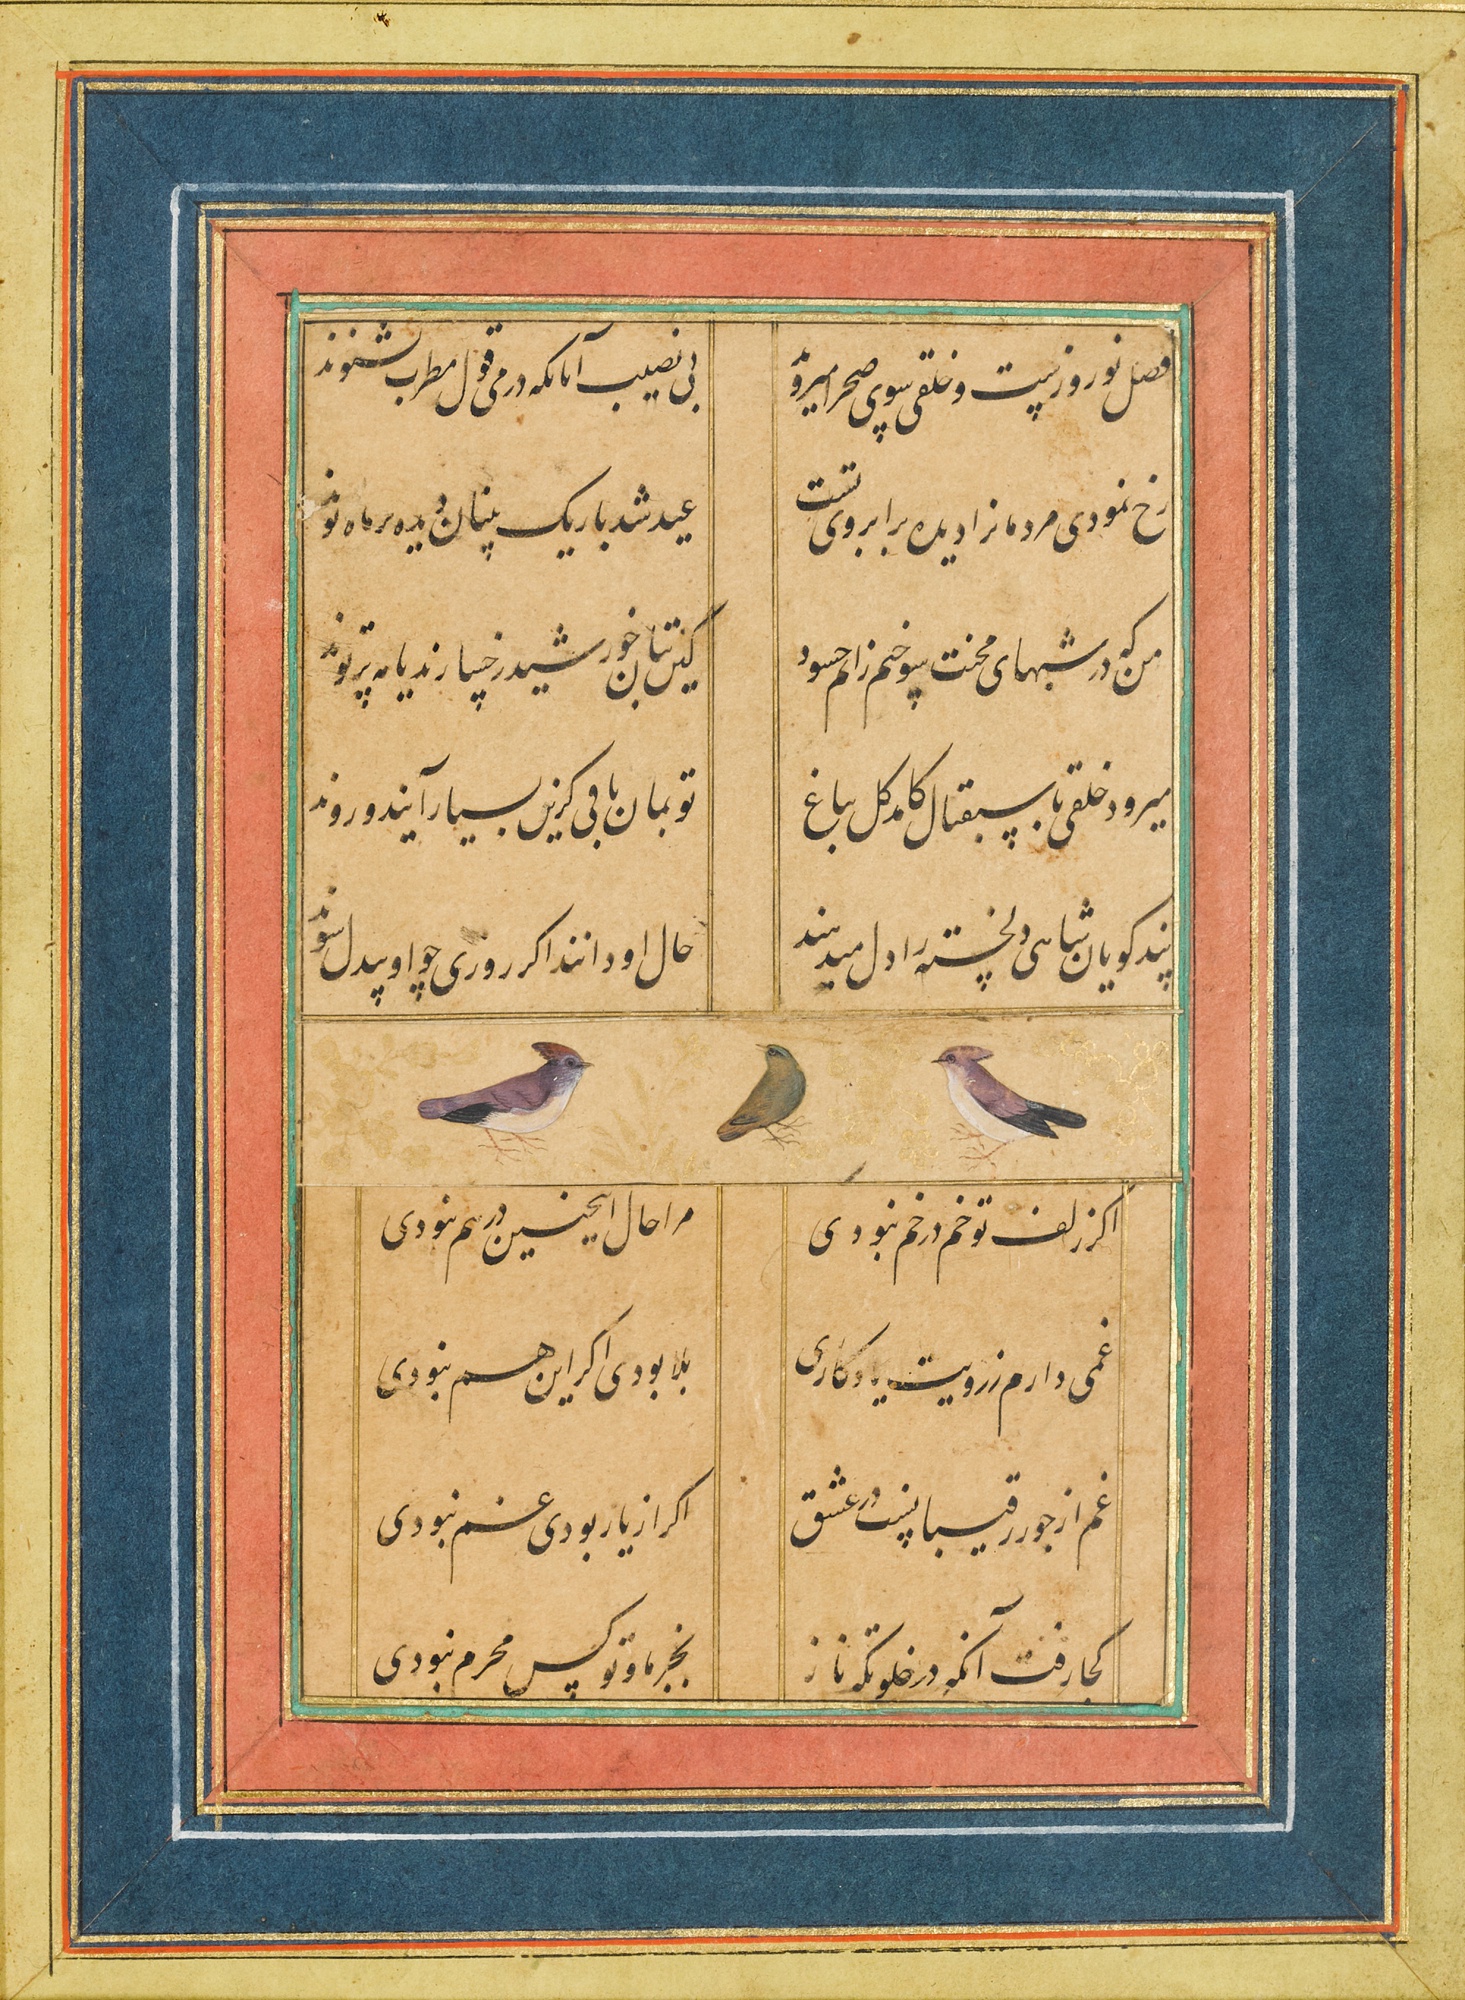 فصل نوروزست و خلقی سوی صحرا میروند
بی نصیب آنانکه در می قول مطرب نشنوند
رخ نمودی مردمانرا دیده بر ابروی تست
عید شد باریک بینان دیده بر ماه نوند
من که در شبهای محنت سوختم زانم حسود
کین تنان خورشید رخسارند یا مه پرتوند
میرود خلقی باستقبال کامد گل بباغ
تو بمان باقی کزین بسیار آیند و روند
پند گویان شاهی دلخسته را دل میدهند
حال او دانند اگر روزی چو او بیدل شوند
اگر زلف تو خم در خم نبودی
مرا حال اینچنین درهم نبودی
غمی دارم ز رویت یادگاری
بلا بودی اگر این هم نبودی
غم از جور رقیبانست در عشق
اگر از یار بودی غم نبودی
کجا رفت آنکه در خلوتگه ناز
بجز ما و تو کس محرم نبودی